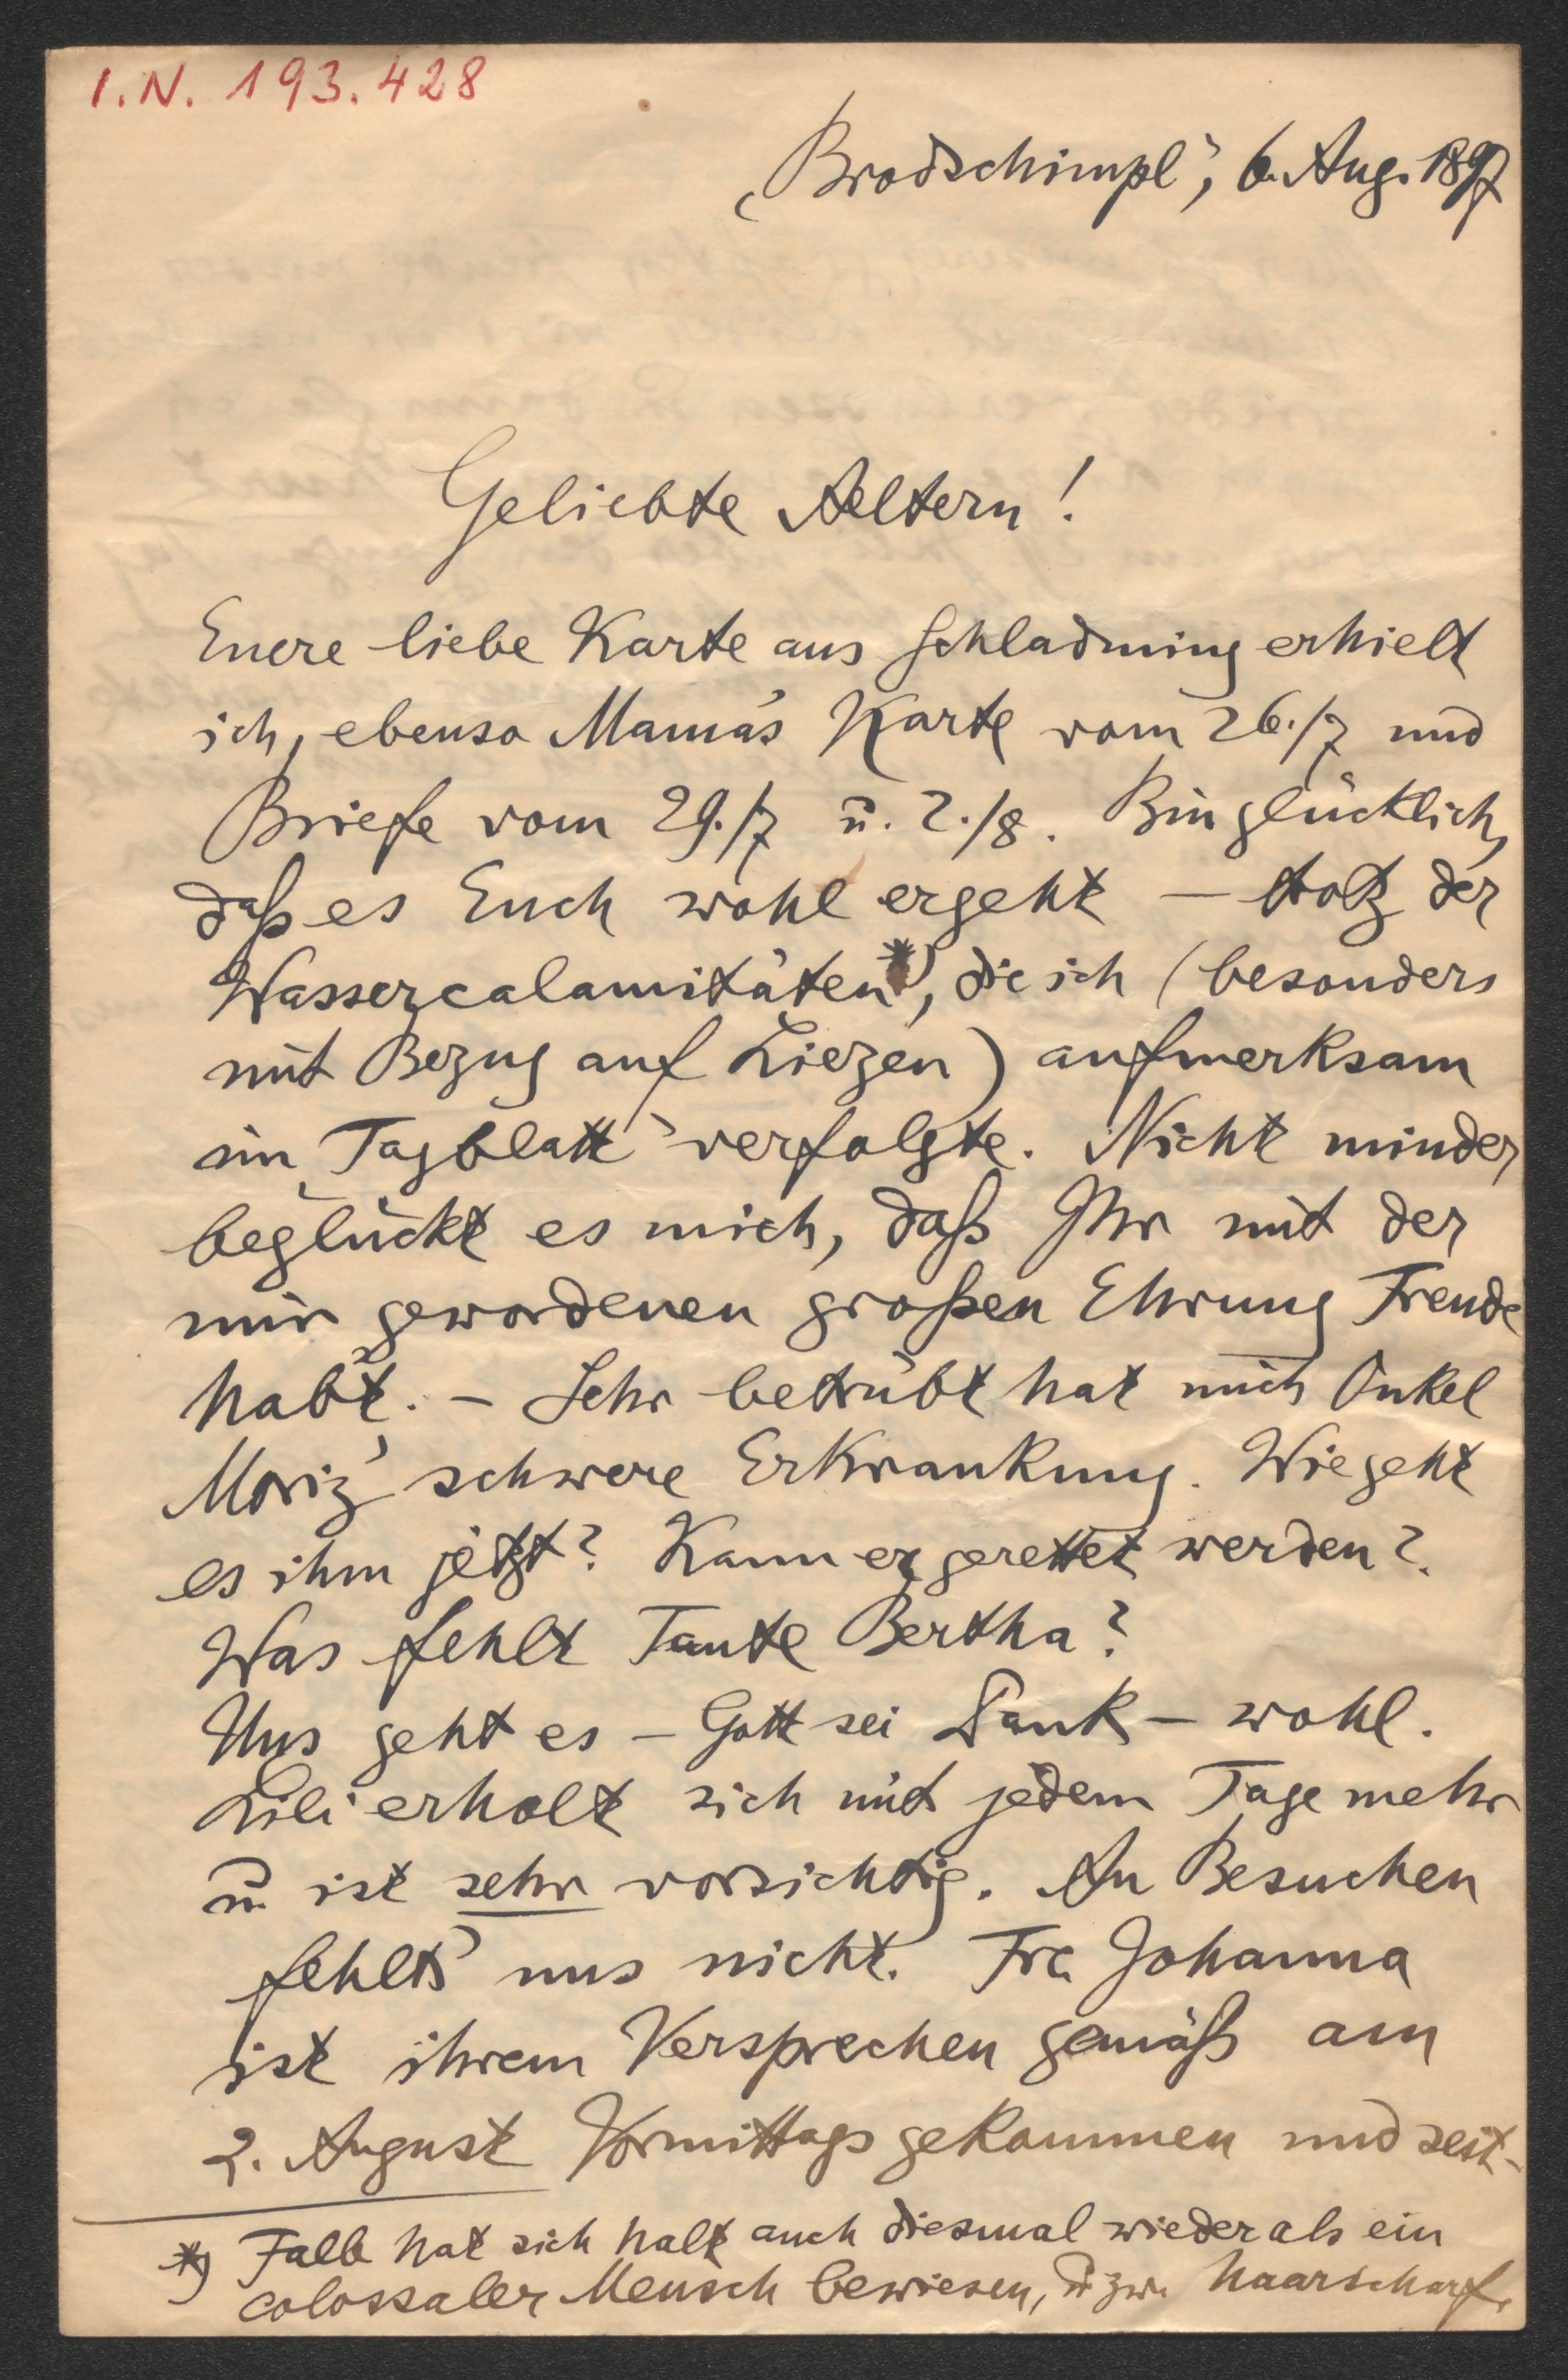 I.N. 193.428
‚Brodschimpl', 6. Aug. 1897
Geliebte Aeltern!
Euere liebe Karte aus Schladming erhielt
ich, ebenso Mama's Karte vom 26./7 und
Briefe vom 29./7 u. 2./8. Bin glücklich,
daß es Euch wohl ergeht – trotz der
Wassercalamitäten*), die ich (besonders
mit Bezug auf Liezen) aufmerksam
im ‚Tagblatt' verfolgte. Nicht minder
beglückt es mich, daß Ihr mit der
mir gewordenen großen Ehrung Freude
habt. – Sehr betrübt hat mich Onkel
Moriz' schwere Erkrankung. Wie geht
es ihm jetzt? Kann er gerettet werden?
Was fehlt Tante Bertha?
Uns geht es – Gott sei Dank – wohl.
Lili erholt sich mit jedem Tage mehr
u. ist sehr vorsichtig. An Besuchen
fehlt's uns nicht. Fr. Johanna
ist ihrem Versprechen gemäß am
2. August Vormittags gekommen und seit-
*) Falb hat sich halt auch diesmal wieder als ein
colossaler Mensch bewiesen, u. zw. haarscharf.